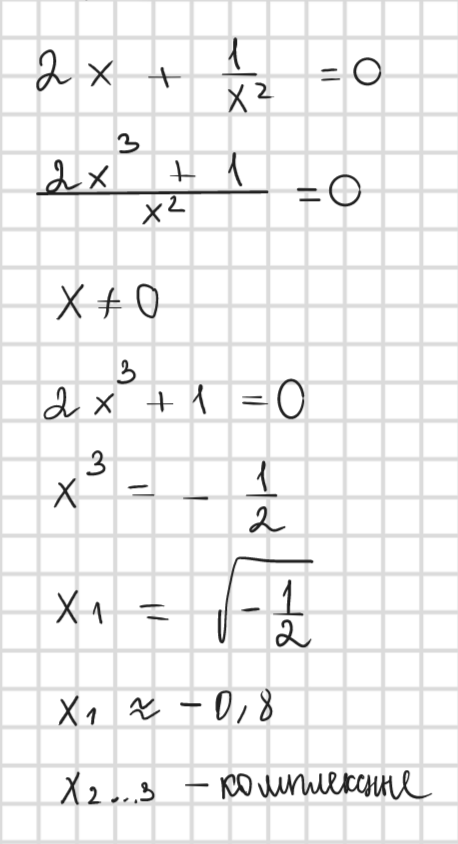 2x + 1/x² = 0
(2x³ + 1)/x² = 0
x ≠ 0
2x³ + 1 = 0
x³ = - 1/2
x₁ = √(-1/2)
x₁ ≈ -0,8
x₂...₃ - комплексные